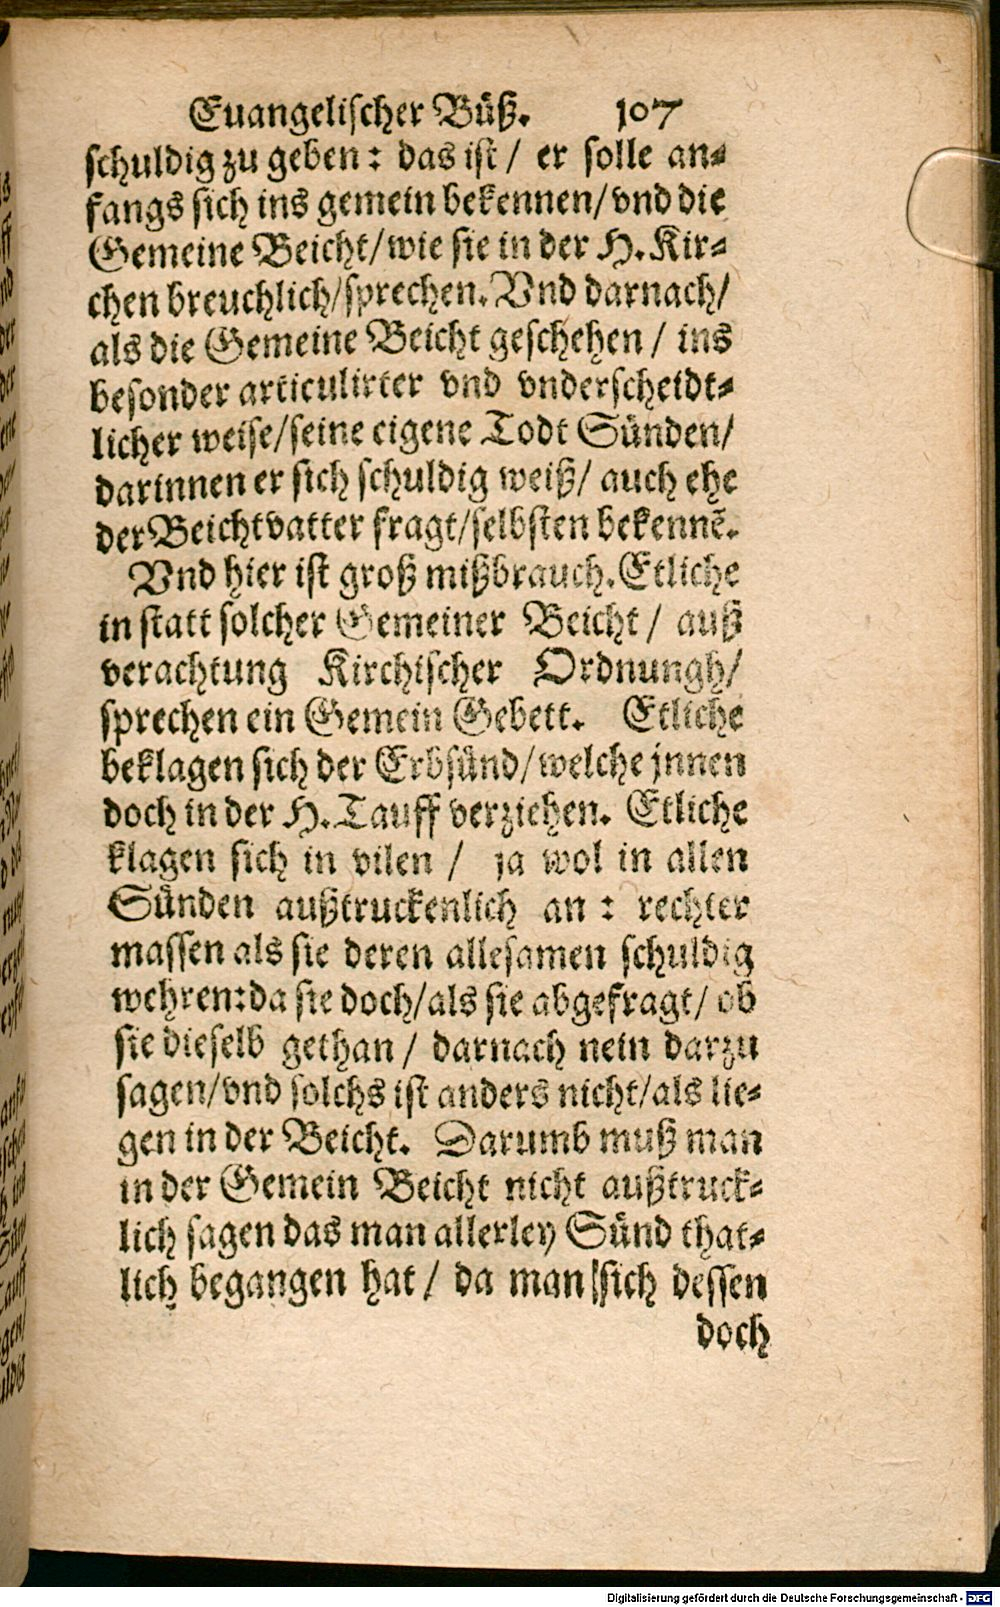 Euangelischer Büß. 107
schuldig zu geben: das ist / er solle an-
fangs sich ins gemein bekennen/vnd die
Gemeine Beicht/wie sie in der H. Kir-
chen breuchlich/sprechen. Vnd darnach/
als die Gemeine Beicht geschehen / ins
besonder articulirter vnd vnderscheidt-
licher weise/seine eigene Todt Sünden/
darinnen er sich schuldig weiß/ auch ehe
der Beichtvatter fragt/selbsten bekennẽ.
Vnd hier ist groß mißbrauch. Etliche
in statt solcher Gemeiner Beicht / auß
verachtung Kirchischer Ordnungh/
sprechen ein Gemein Gebett. Etliche
beklagen sich der Erbsünd/welche jnnen
doch in der H. Tauff verziehen. Etliche
klagen sich in vilen / ja wol in allen
Sünden außtruckenlich an: rechter
massen als sie deren allesamen schuldig
wehren:da sie doch/als sie abgefragt/ ob
sie dieselb gethan / darnach nein darzu
sagen/vnd solchs ist anders nicht/als lie-
gen in der Beicht. Darumb muß man
in der Gemein Beicht nicht außtruck-
lich sagen das man allerley Sünd that-
lich begangen hat / da man sich dessen
doch
Digitalisierung gefördert durch die Deutsche Forschungsgemeinschaft - DFG